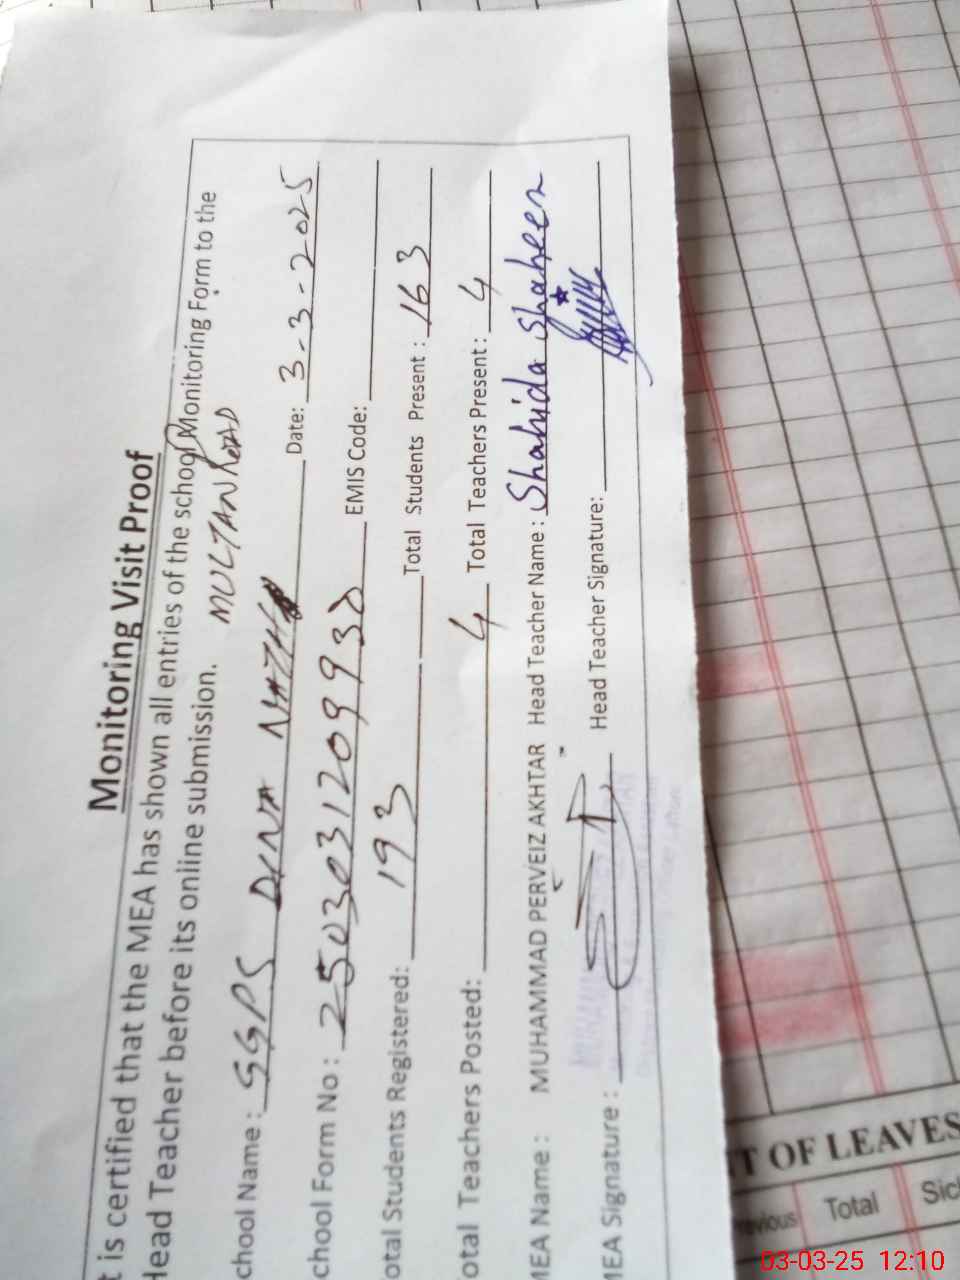 Monitoring Visit Proof
t is certified that the MEA has shown all entries of the school Monitoring Form to the
Head Teacher before its online submission.
MULTAN ROAD
chool Name : GGPS DINA NATH Date: 3-3-2025
chool Form No : EMIS Code:
otal Students Registered: 193 Total Students Present : 163
otal Teachers Posted: 4 Total Teachers Present : 4
MEA Name : MUHAMMAD PERVEIZ AKHTAR Head Teacher Name : Shahida Shaheen
MEA Signature : Head Teacher Signature:
T OF LEAVES
evious Total Sic
03-03-25 12:10